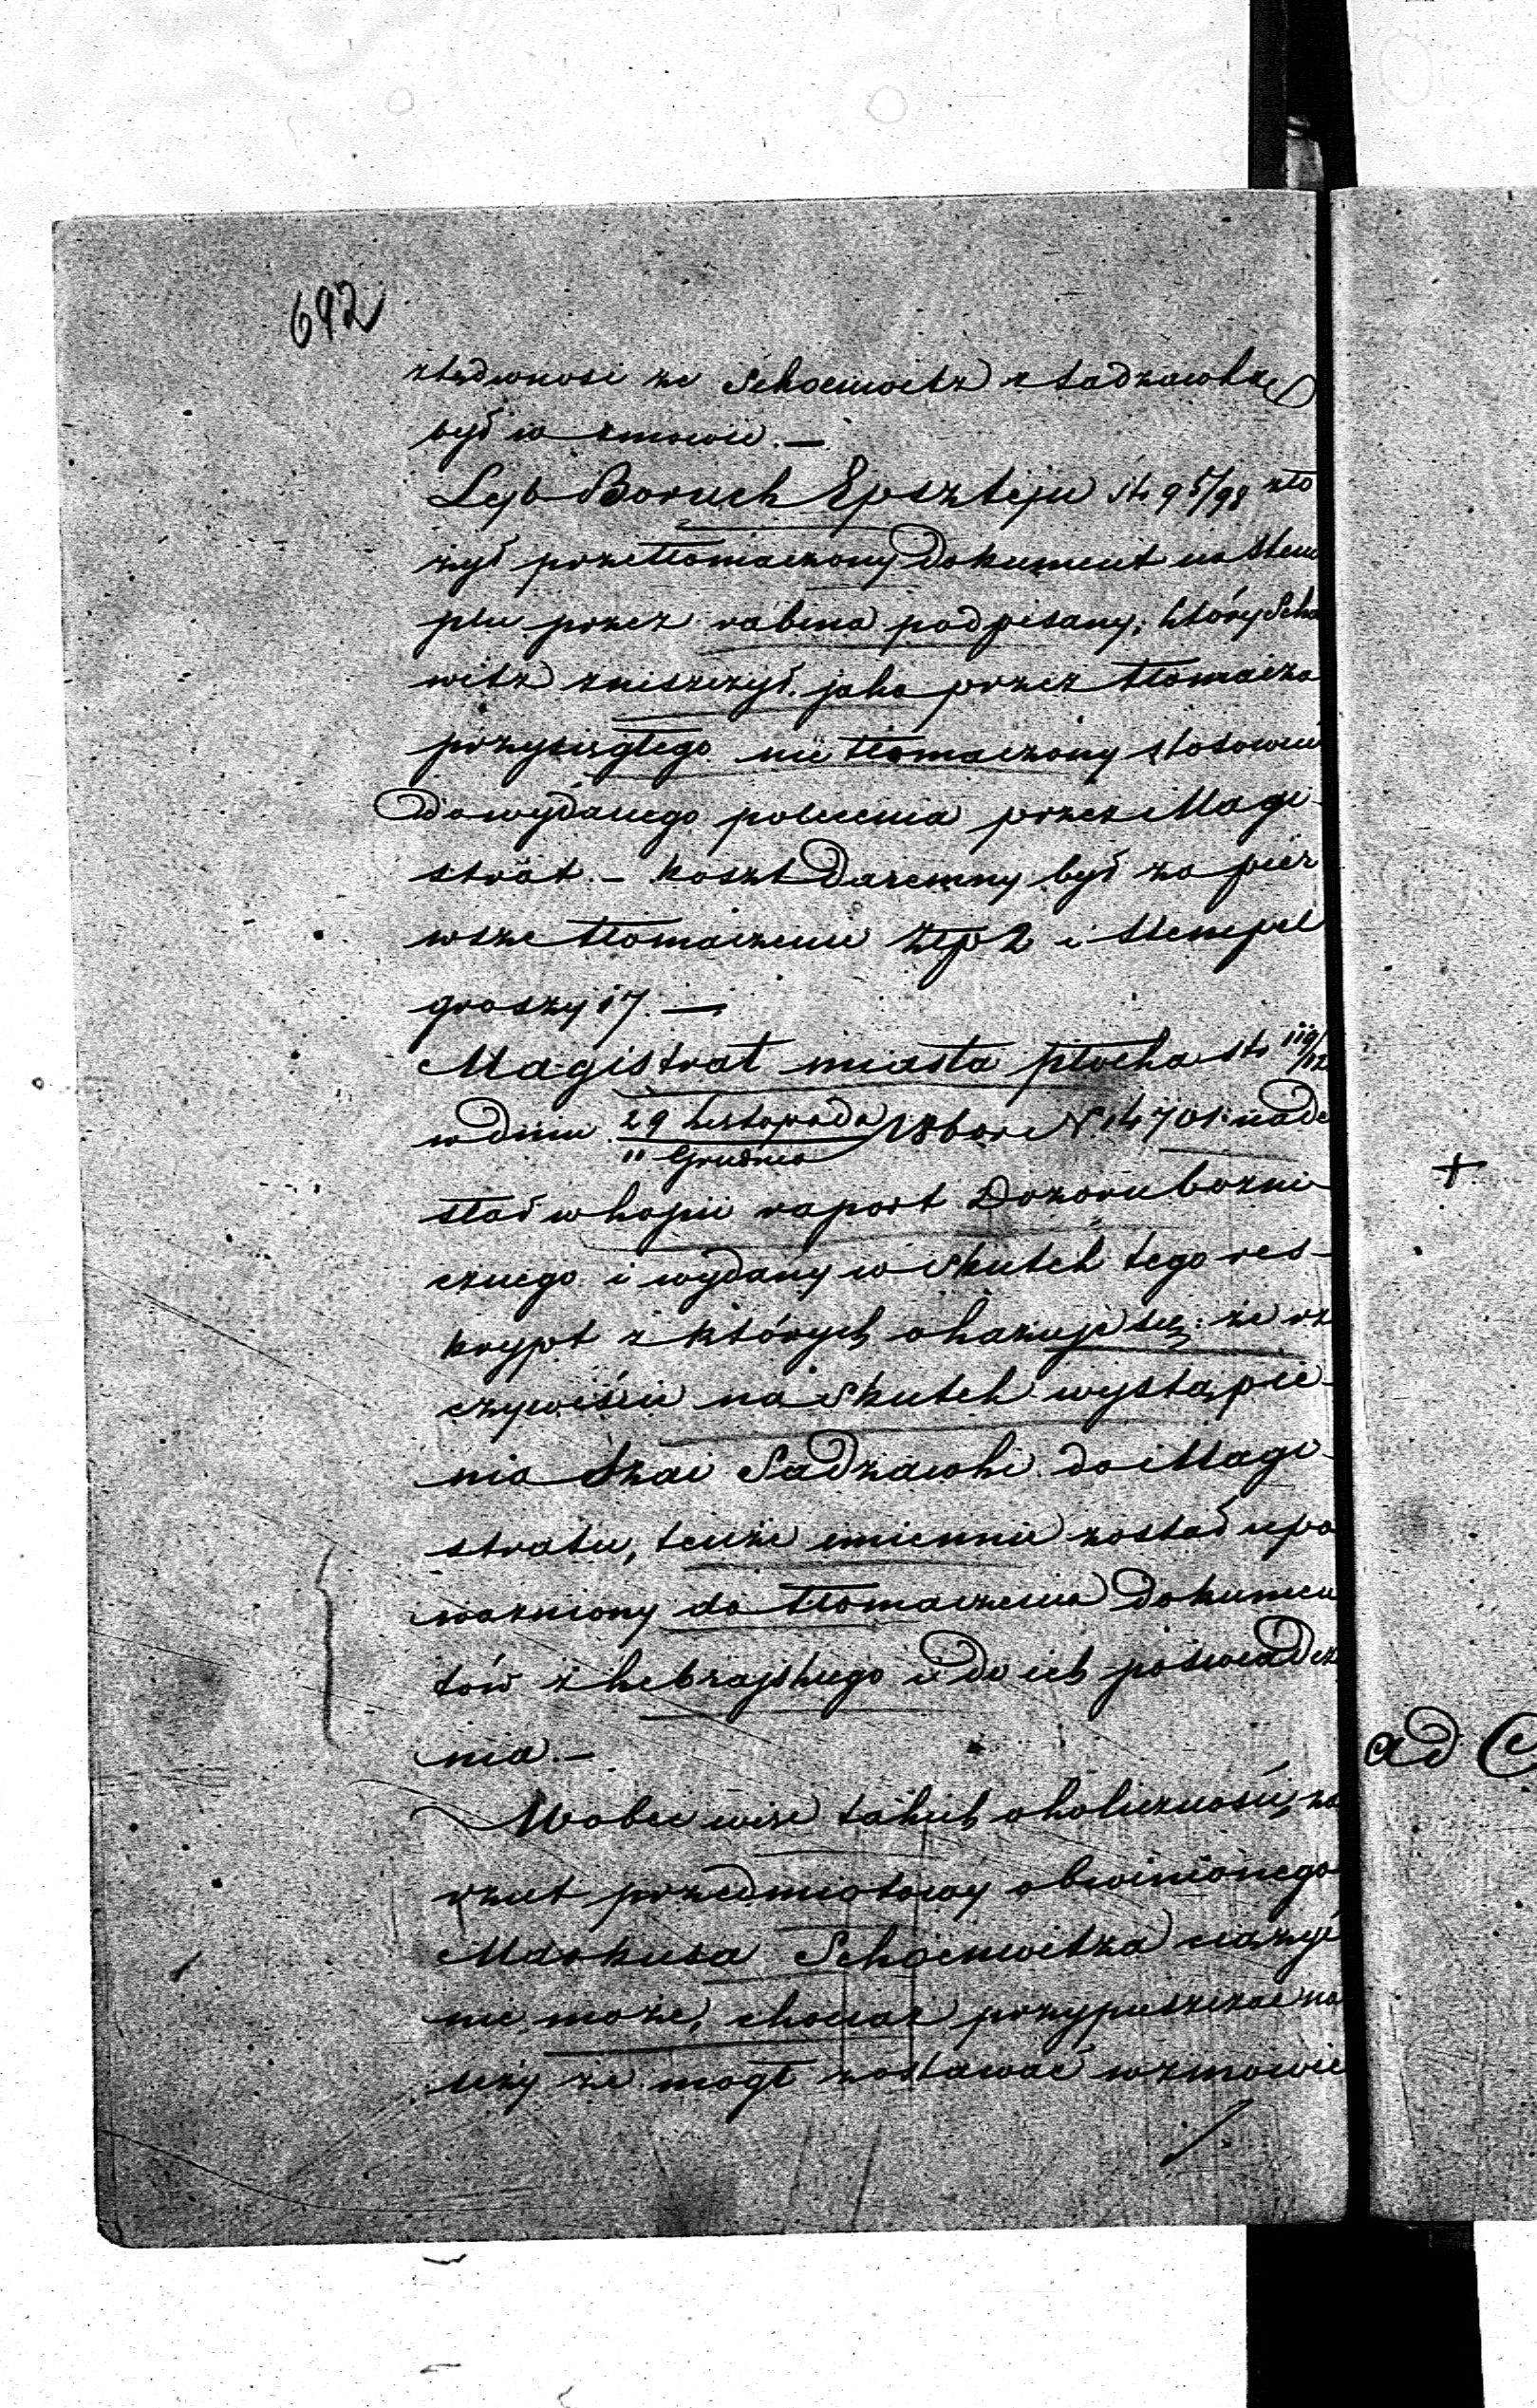 692
że Schoenwitz z Sadzawką
był w zmowie. —
Lejb Boruch Epsztejn str 95/98 zło
żył przetłomaczony dokument na stem
plu przez rabina podpisany, który Scho
witz zniszczył jako przez tłomacza
przysięgłego nie tłomaczony stosownie
do wydanego polecenia przez Magi-
strat. — koszt daremny był za pier
wsze tłomaczenie Złp 2 i stempel
groszy 17. —
Magistrat miasta płocka str 119/12
w dniu 29 Listopada
11 Grudnia
186 roku N. 14701. nade
słał w kopii raport Dozoru bożni
cznego i wydany w skutek tego res-
krypt z których okazuje się; że rze
czywiście na skutek wystąpie-
nia Szai Sadzawki do Magi-
stratu, tenże imiennie został upo
ważniony do tłomaczenia dokumen
tów z hebrajskiego i do ich poświadcz
nia. —
Wobec więc takich okoliczności, za
rzut przedmiotowy obwinionego
Markusa Schoenwitza ciążyć
nie może, chociaż przypuszczać na
leży że mógł zostawać w zmowie
+
ad C